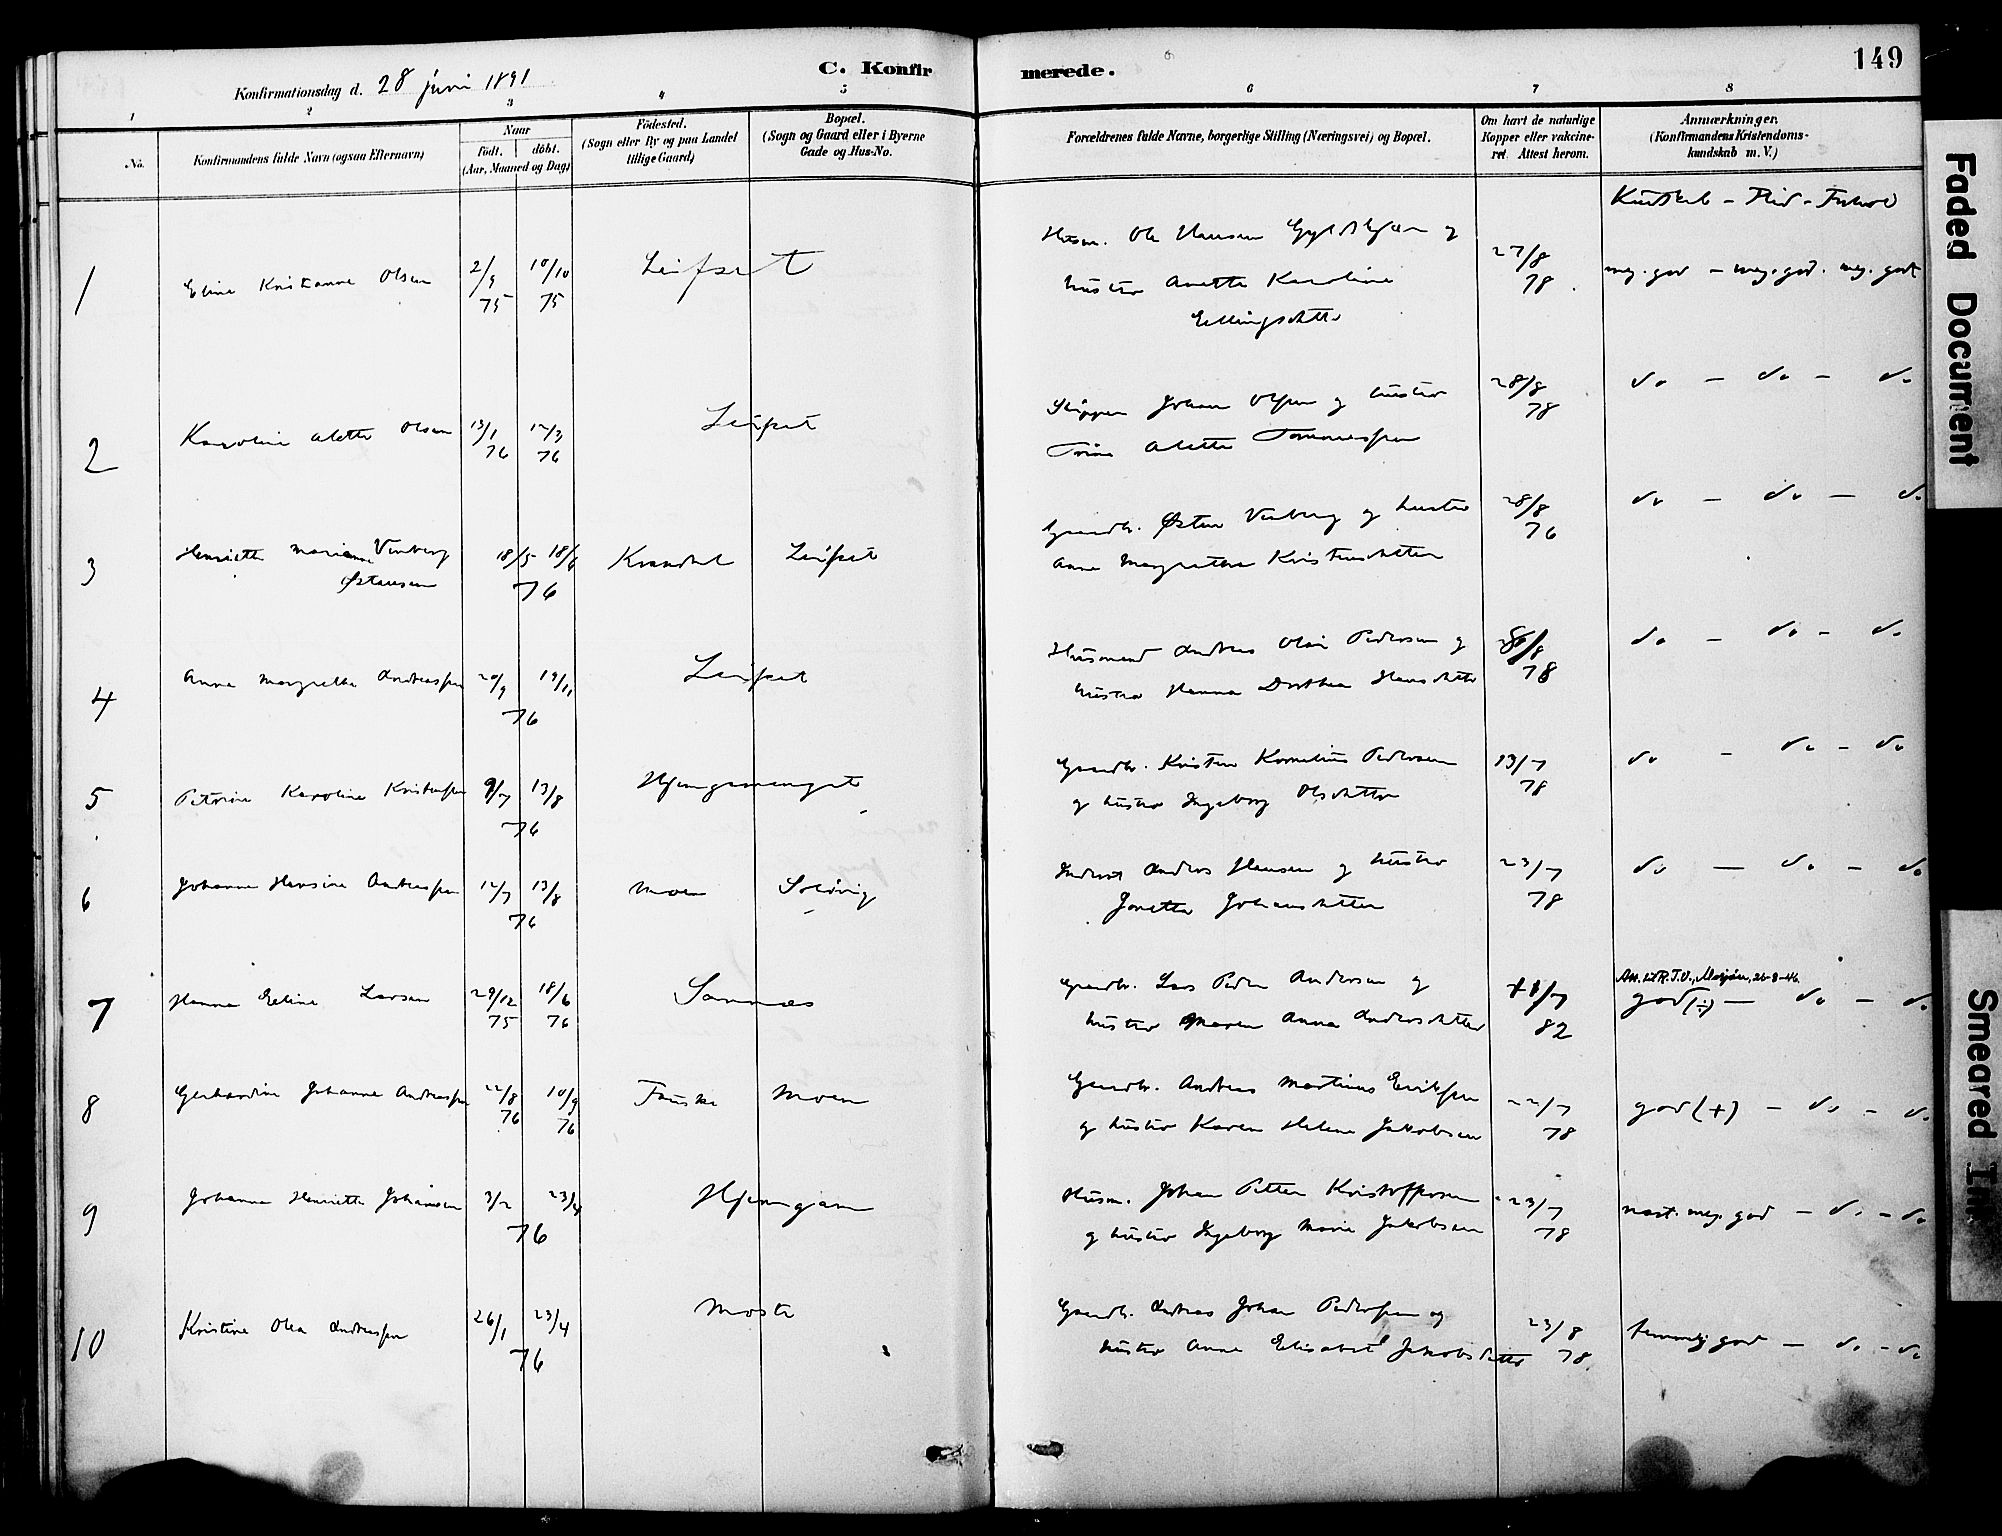 149
C. Konfirmerede.
Konfirmationsdag d. 28 juni 1891
1 2 3 4 5 6 7 8
No.
Konfirmandens fulde Navn (ogsaa Efternavn)
Naar
födt. döbt.
(Aar, Maaned og Dag)
Födested.
(Sogn eller By og paa Landet
tillige Gaard)
Bopæl.
(Sogn og Gaard eller i Byerne
Gade og Hus-No.
Forældrenes fulde Navne, borgerlige Stilling (Næringsvei) og Bopæl.
Om havt de naturlige
Kopper eller vakcine-
ret. Attest herom.
Anmærkninger.
(Konfirmandens Kristendoms-
kundskab m. V.)
Kundskab - Flid - Forhold
1 Eline Kristianne Olsen 2/9 75 10/10 75 Leifset
Husm. Ole Hansen og
hustru Anette Karoline
Ellingsdatter
27/8 78
meg. god - meg. god. meg. godt
2 Karoline Alette Olsen 13/1 76 12/3 76 Leifset
Skipper Johan Olsen og hustru
Trine Alette Tommessen
28/8 78
do - do - do
3 Henriette Marianne Venberg
Østensen
18/5 18/6 76 Kvandal Leifset
Gaardbr. Østen Venberg og hustru
Anne Margrethe Kristensdatter
28/8 76
do - do - do
4 Anna Margrethe Andreassen 20/9 19/11 76 Leifset
Husmand Andreas Olai Pedersen og
hustru Hanna Dorthea Hansdatter
78
do - do - do
5 Petrine Karoline Kristensen 9/7 13/8 76 Hjemgammen
Gaardbr. Kristen Kornelius Pedersen
og hustru Ingeborg Olsdatter
13/7 78
do - do - do
6 Johanne Hansine Andreassen 12/7 13/8 76 Moen Solvig
Inderst Andreas Hansen og hustru
Jonetta Johansdatter
23/7 78
do - do - do
7 Hanna Eeline Larsen 29/12 75 18/6 76 Sannæs
Gaardbr. Lars Peder Andersen og
hustru Maren Anna Andersdatter
11/7 82
Att. t. R.T.V., Mosjøen, 26-8-46
god(÷) - do - do
8 Gerhardine Johanna Andreassen 22/8 76 10/9 76 Fauske Moen
Gaardbr. Andreas Martinus Eriksen
og hustru Karen Helene Jakobsen
22/7 78
god (+) - do - do
9 Johanna Henriette Johansen 3/2 23/4 76 Hjemgam
Husm. Johan Petter Kristoffersen
og hustru Ingeborg Marie Jakobsen
23/7 78
næst. meg. god - do - do
10 Kristine Olea Andreassen 26/1 23/4 76 Moste
Gaardbr. Andreas Johan Pedersen og
hustru Anne Elisabet Jakobsdatter
23/8 78
temmelig god - do - do
Faded Document
Smeared Ink